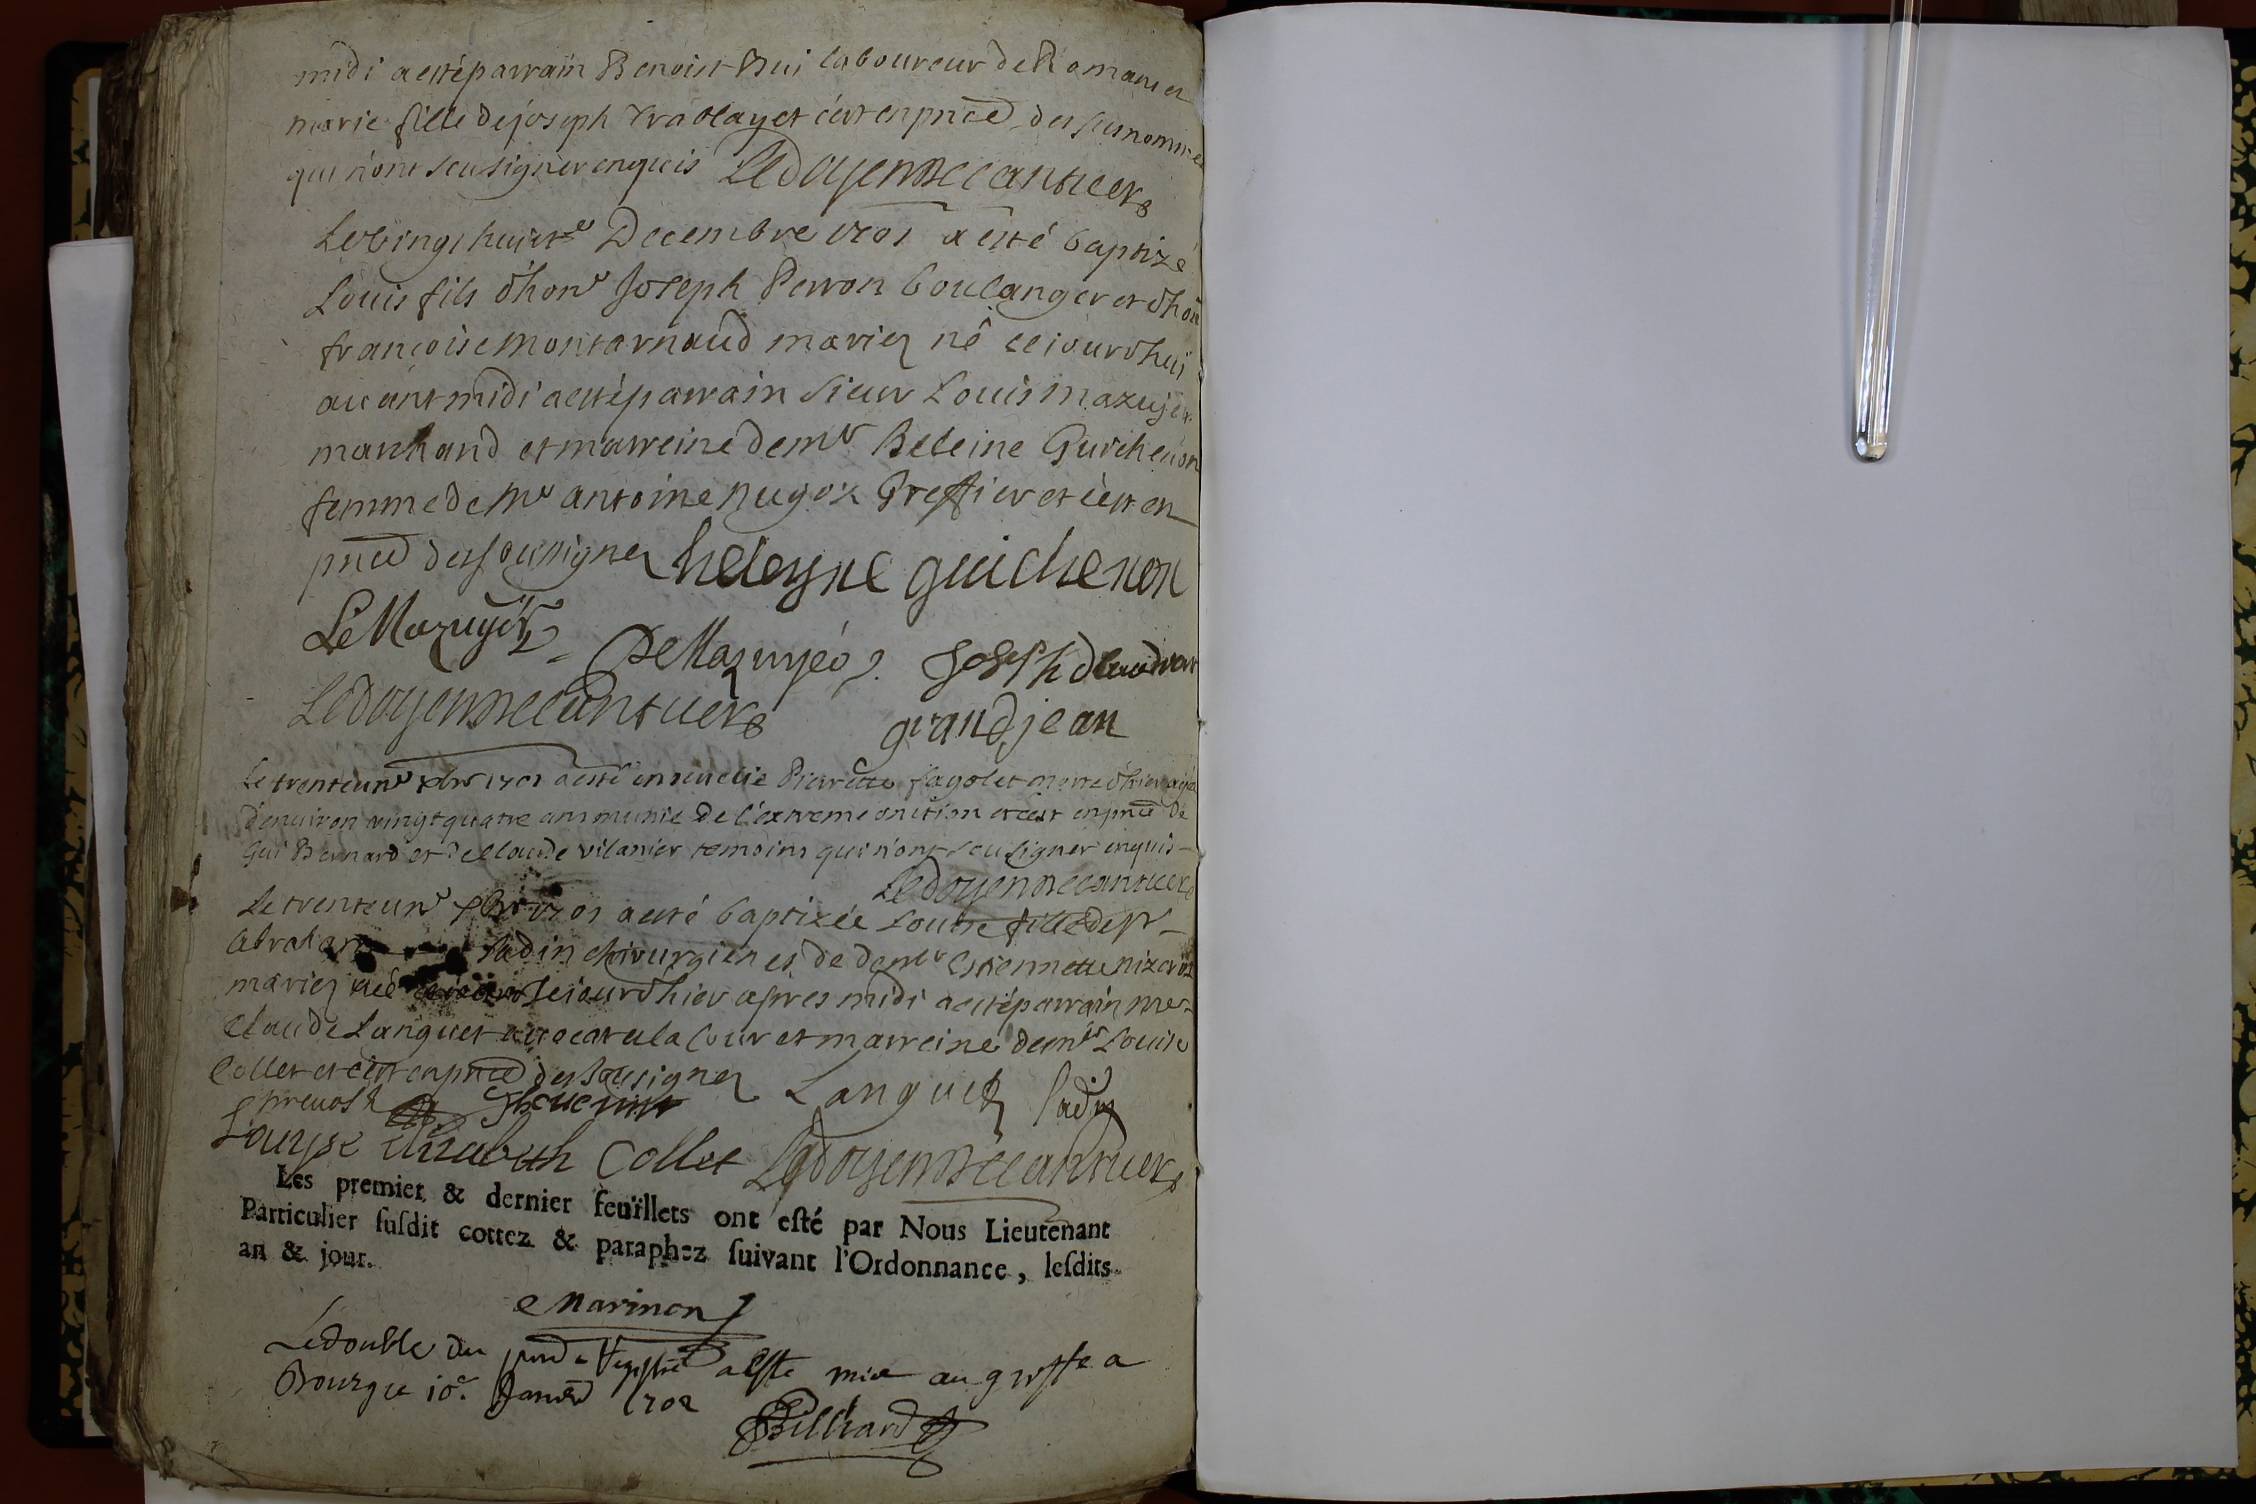 midi a esté parrain Benoist Bui laboureur de Romanei
marie fille de joseph Vrablay et c'est en pnce des susnommés
qui n'ont sceu signer enquis Le doyen
Le vingt huict.e Decembre 1701 a esté baptizé
Louis fils d'hon.e Joseph Perron boulanger et d'hon
françoise montarnaud mariez né ce iourdhui
avant midi a esté parrain sieur Louis mazuyer
marchand et marreine dem.le Heleine Guichenon
femme de M.e antoine nugox Greffier et c'est en
pnce des sousignez heleyne guichenon
Le Mazuyer De Mazuyer Joseph
Le doyen grandjean
Le trenteun.e xbre 1701 a esté ensevelie Pierrette fagolet morte d'hier agée
d'environ vingt quatre ans munie de l'extreme onction et c'est en pnce de
Gui Bernard et de Claude vilanier temoins qui n'ont sceu signer enquis
Le doyen
Le trenteun.e xbre 1701 a esté baptizée Louise fille de Sr
Abraham Sadin chirurgien et de dem.le Estiennette
mariez née le iourdhier apres midi a esté parrain me
Claude Languet avocat a la Cour et marreine dem.le Louise
Collet et c'est en pnce des sousignez Languet Sadin
prevost
Louyse Elizabeth Collet Le doyen
Les premier & dernier feüillets ont eſté par Nous Lieutenant
Particulier ſuſdit cottez & paraphez ſuivant l'Ordonnance, leſdits
an & jour.
Marinon
Le double du pnd Registre a esté mis au greffe a
Bourg ce 10.e Janvier 1702
Billiard